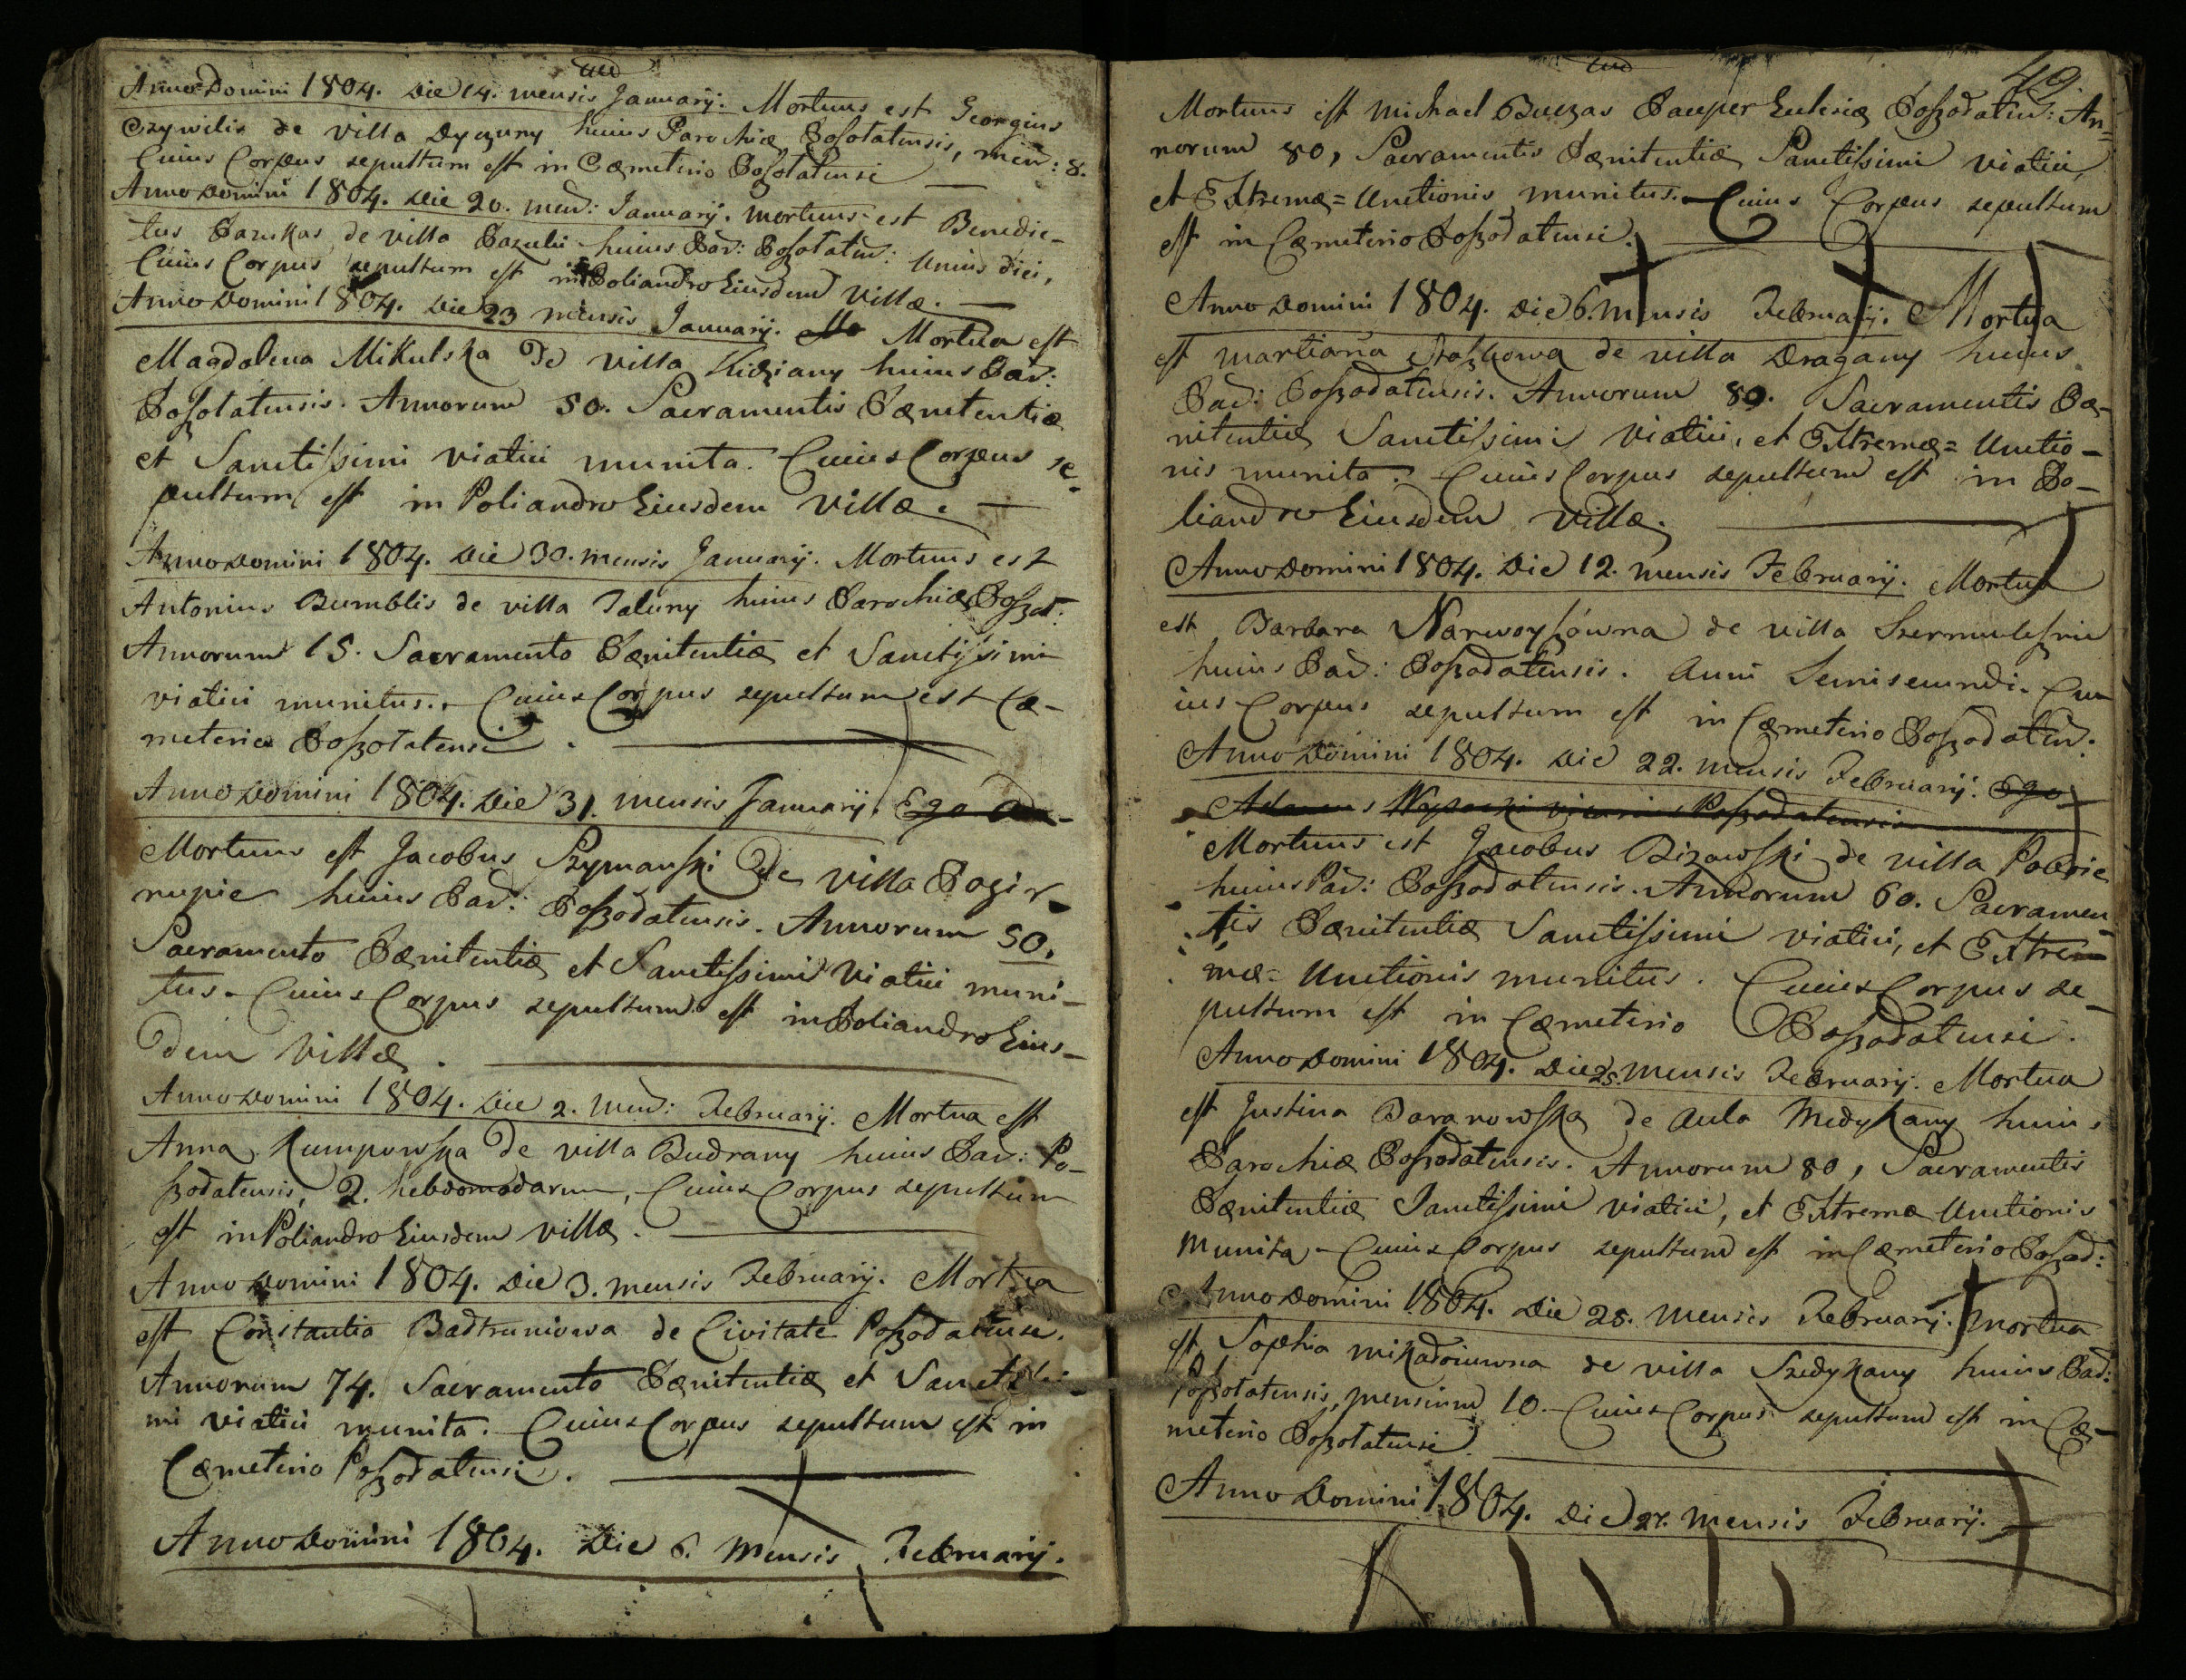 Anno Domini 1804. Die 14. mensis Januarij. Mortuus est Georgius
Czywilis de villa Dyczuny huius Parochiæ Poszołatensis, men: 8.
Cuius Corpus sepultum est in Cæmeterio Poszołatensi
Anno Domini 1804. Die 20. men: Januarij. mortuus est Benedic-
tus de villa huius Par: Poszołaten: Unius diei,
Cuius Corpus sepultum est in Poliandro Eiusdem Villæ.
Anno Domini 1804. Die 23 mensis Januarij. Mo Mortua est
Magdalena Mikulska De villa Kidziany huius Par:
Poszołatensis. Annorum 50. Sacramentis Pænitentiæ
et Sanctissimi viatici munita. Cuius Corpus se-
pultum est in Poliandro Eiusdem Villæ.
Anno Domini 1804. Die 30. mensis Januarij. Mortuus est
Antonius Bumblis de villa Taluny huius Parochiæ Poszoł:
Annorum 15. Sacramento Pænitentiæ et Sanctissimi
viatici munitus. Cuius Corpus sepultum est Cæ-
meterio Poszołatensi.
Anno Domini 1804. Die 31. mensis Januarij. Ego
Mortuus est Jacobus Szymanski De Villa Pogir-
nupie huius Par: Poszodatensis. Annorum 50.
Sacramento Pænitentiæ et Sanctissimi Viatici muni-
tus. Cuius Corpus sepultum est in Poliandro Eius-
dem Villæ.
Anno Domini 1804. Die 2. Men: Februarij. Mortua est
Anna Kumpowska De villa Budrany huius Par: Po-
szodatensis, 2. hebdomodarum, Cuius Corpus sepultum
est in Poliandro Eiusdem villæ.
Anno Domini 1804. Die 3. mensis Februarij. Mortua
est Constantia Badtruniowa de Civitate Poszodatensi.
Annorum 74. Sacramento Pænitentiæ et Sanctissi-
mi viatici munita. Cuius Corpus sepultum est in
Cæmeterio Poszodatensi.
Anno Domini 1804. Die 6. Mensis Februarij.
49.
Mortuus est Michael Buczas Pauper Eclesiæ Poszodaten: An=
norum 80, Sacramentis Pænitentiæ Sanctissimi viatici,
et Extremæ=Unctionis munitus. Cuius Corpus sepultum
est in Cæmeterio Poszodatensi.
Anno Domini 1804. Die 6. Mensis Februarij. Mortua
est Martianna de villa Dragany huius
Par: Poszodatensis. Annorum 80. Sacramentis Pæ-
nitentiæ Sanctissimi Viatici, et Extremæ=Unctio-
nis munita. Cuius Corpus sepultum est in Po-
liandro Eiusdem Villæ.
Anno Domini 1804. Die 12. mensis Februarij. Mortua
est Barbara Narwoyszowna de villa
huius Par: Poszodatensis. Anni Semisecundi. Cu-
ius Corpus sepultum est in Cæmeterio Poszodaten.
Anno Domini 1804. Die 22. Mensis Februarij. Ego
Adamus vicarius Poszodatensis
Mortuus est Jacobus Bizowski de villa Pobrie
huius Par: Poszodatensis. Annorum 60. Sacramen-
tis Pænitentiæ Sanctissimi viatici, et Extre-
mæ=Unctionis munitus. Cuius Corpus se-
pultum est in Cæmeterio Poszodatensi.
Anno Domini 1804. Die 25. Mensis Februarij. Mortua
est Justina Baranowska de Aula Medykany huius
Parochiæ Poszodatensis. Annorum 80, Sacramentis
Pænitentiæ Sanctissimi viatici, et Extremæ Unctionis
Munita. Cuius Corpus sepultum est in Cæmeterio Poszod:
Anno Domini 1804. Die 25. Mensis Februarij. Mortua
est Sophia Mikadoiuwna de villa Szedykany huius Par:
Poszołatensis, mensium 10. Cuius Corpus sepultum est in Cæ-
meterio Poszołatensi.
Anno Domini 1804. Die 27. Mensis Februarij.